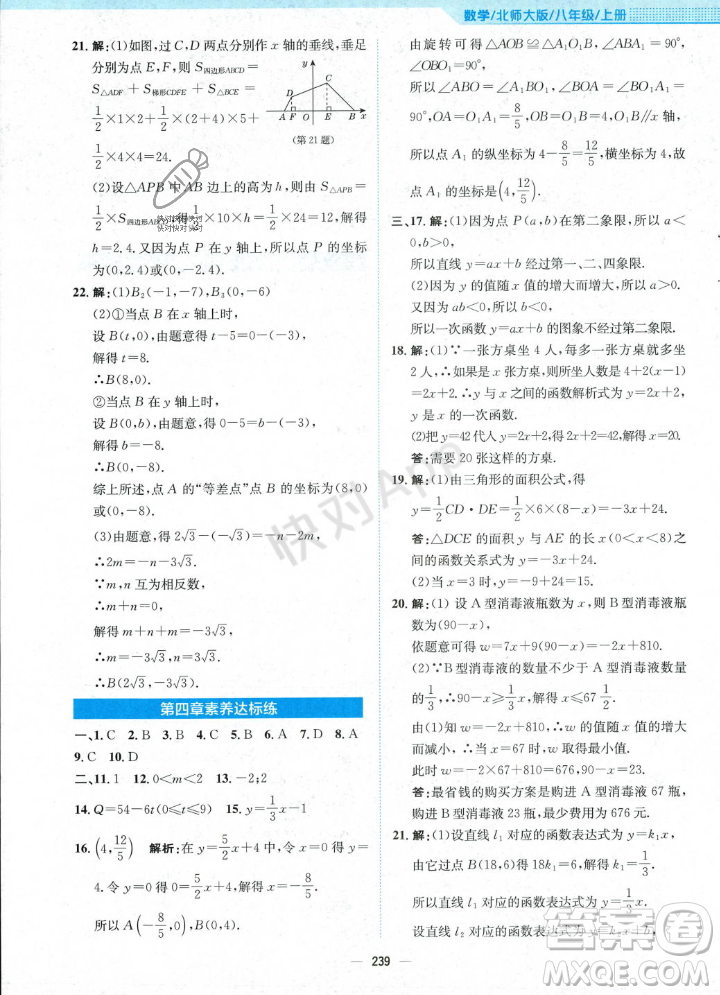 数学/北师大版/八年级/上册
21. 解:(1)如图,过C,D两点作x轴的垂线,垂足
分别为点E,F,则S四边形ABCD=
S△ADF+S梯形CDFE+S△BCE=
1/2×1×2+1/2×(2+4)×5+
1/2×4×4=24.
A F O E B x
y
D
C
(第21题)
(2)设△APB中AB边上的高为h,则由S△APB=
1/2×10×h=
h=2.4. 又因为点P在y轴上,所以点P的坐标
为(0,2.4)或(0,-2.4).
22. 解:(1)B₂(-1,-7),B₃(0,-6)
(2)①当点B在x轴上时,
设B(t,0),由题意得t-5=0-(-3),
解得t=8.
∴B(8,0).
②当点B在y轴上时,
设B(0,b),由题意得0-5=b-(-3),
解得b=-8.
∴B(0,-8).
综上所述,点A的“等差点”点B的坐标为(8,0)
或(0,-8).
(3)由题意,得2√3-(-√3)=-n-2m,
∴2m=-n-3√3.
∵m,n互为相反数,
∴m+n=0.
解得m=-3√3,
∴n=3√3,
∴B(2√3,-3√3).
第四章素养达标练
一、1. C 2. B 3. B 4. C 5. D 6. D 7. B 8. A
9. C 10. D
二、11. 1 12. 0<m<2 13. -2;2
14. Q=54-6t(0≤t≤9) 15. y=1/3x-1
16. (4,12/5) 解析:在y=5/2x+4中,令x=0得y=
4. 令y=0,得0=5/2x+4,解得x=-8/5.
所以A(-8/5,0),B(0,4).
由旋转可得△AOB≌△A₁O₁B,∠ABA₁=90°,
∠OBO₁=90°,
所以∠ABO=∠A₁BO₁,∠BO₁A₁=∠AOB=
90°,OA=O₁A₁=8/5,OB=O₁B=4,O₁B∥x轴,
所以点A₁的纵坐标为4-8/5=12/5,横坐标为4,故
点A₁的坐标是(4,12/5).
三、17. 解:(1)因为点P(a,b)在第二象限,所以a<
0,b>0,
所以直线y=ax+b经过第一、二、四象限.
(2)因为y的值随x值的增大而增大,所以a>0.
又因为ab<0,所以b<0,
所以一次函数y=ax+b的图象不经过第二象限.
18. 解:(1)∵一张方桌坐4人,每多一张方桌就多坐
2人,∴如果是x张方桌,则所坐人数是4+2(x-1)
=2x+2. ∴y与x之间的函数解析式为y=2x+2,
y是x的一次函数.
(2)把y=42代入y=2x+2,得42=2x+2,x=20.
答:需要20张这样的方桌.
19. 解:(1)由三角形的面积公式,得
y=1/2CD·DE=1/2×6×(8-x)=24-3x.
答:△DCE的面积y与AE的长x(0<x<8)之间
的函数关系式为y=-3x+24.
(2)当x=3时,y=-9+24=15.
20. 解:(1)设A型消毒液瓶数为x,则B型消毒液瓶
数为(90-x),
依题意可得w=7x+9(90-x)=-2x+810.
(2)∵B型消毒液的数量不少于A型消毒液数量
的1/3,∴90-x≥1/3x,解得x≤67 1/2.
由(1)知w=-2x+810,∴w的值随x值的增大
而减小,∴当x=67时,w取得最小值.
此时w=-2×67+810=676,90-x=23.
答:最省钱的购买方案是购进A型消毒液67瓶,
购进B型消毒液23瓶,最低费用为676元.
21. 解:(1)设直线l₁对应的函数表达式为y=k₁x,
由它过点(18,6)得18k₁=6,解得k₁=1/3,
所以直线l₁对应的函数表达式为y=1/3x.
设直线l₂对应的函数表达式为
239
快对App
答案圈
MXQE.COM